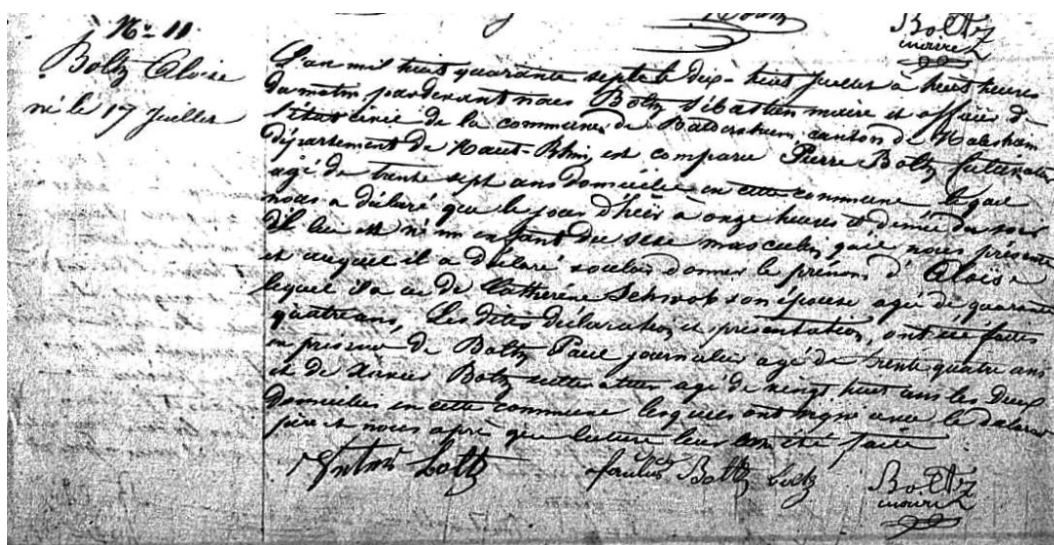 Boltz
maire
N.o 11
Boltz Aloise
né le 17 Juillet
L'an mil huit quarante septe le dix-huit Juillet à huit heures
du matin pardevant nous Boltz Sébastien maire et officier de
l'état civil de la commune de Baldersheim, canton de Habsheim
département de Haut-Rhin, est comparu Pierre Boltz cultivateur
agé de trente sept ans domicilié en cette commune lequel
nous a déclaré que le jour d'hier à onze heures et demie du soir
Il lui est né un enfant du sexe masculin, qui nous présente
et auquel il a déclaré vouloir donner le prénom d'Aloise
lequel il a eu de Catherine Schwob son épouse agé de quarante
quatre ans, Les dites déclaration et présentation, ont été faites
en présence de Boltz Paul journalier agé de trente quatre ans
et de Xavier Boltz cultivateur agé de vingt huit ans les deux
Domiciliés en cette commune lesquels ont signé avec le déclarant
père et nous après que lecture leur en été faite
Boltz Boltz
Boltz
maire